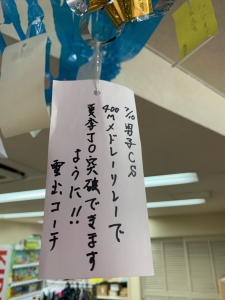 7/10 男子CS
400Mメドレーリレーで
夏季JO突破できます
ように!!
雲出コーチ